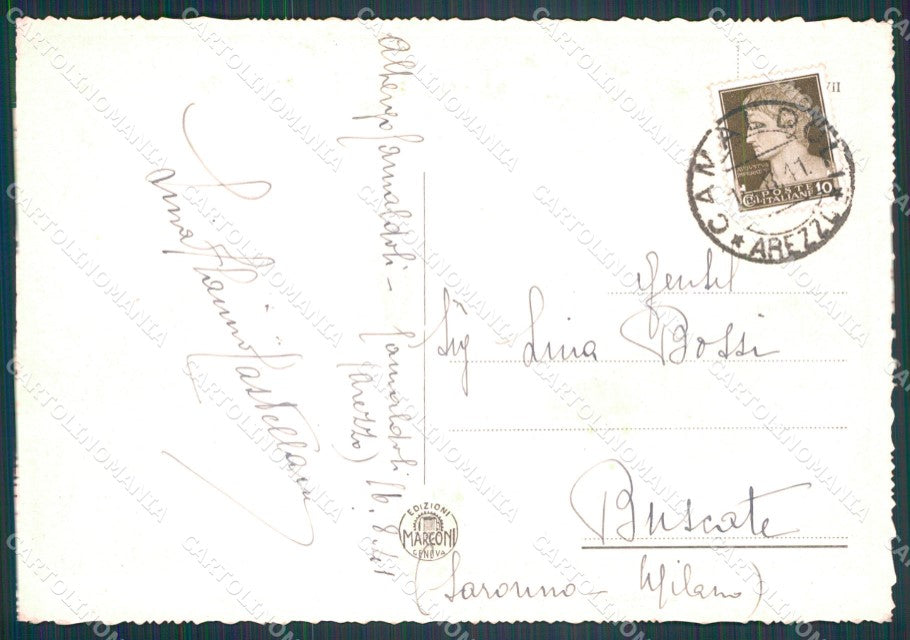 Albergo Camaldoli - Camaldoli 16.8.41
(Arezzo)
VII
CAMALDOLI
* AREZZO *
POSTE
ITALIANE
10
Gentil
Sig Lina Bossi
Buscate
(Saronno - Milano)
EDIZIONI
MARCONI
GENOVA
CARTOLINOMANIA